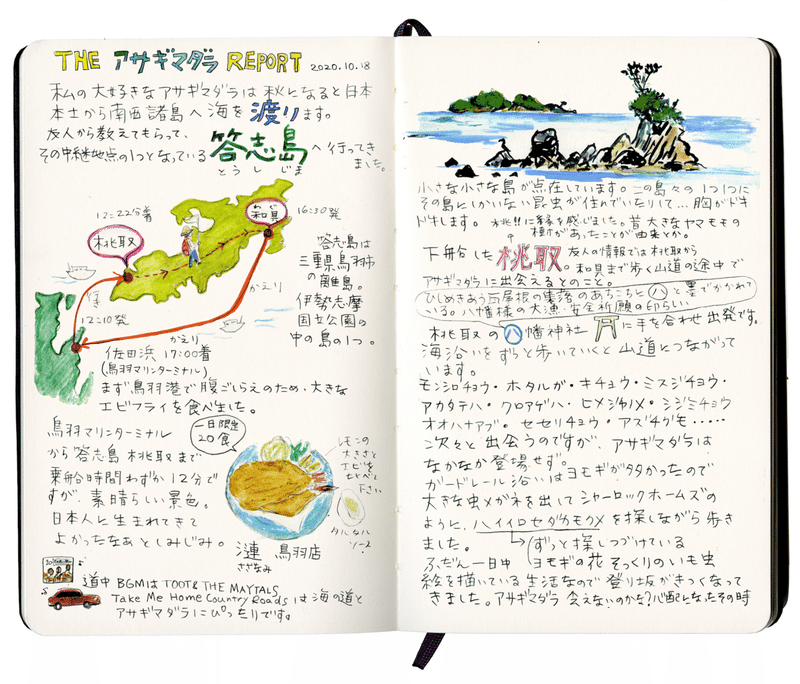 THE アサギマダラ REPORT 2020.10.18
私の大好きなアサギマダラは秋になると日本
本土から南西諸島へ海を渡ります。
友人から教えてもらって、
その中継地点の1つとなっている答志島へ行ってき
ました。
とうしじま
12:22分着
桃取
わぐ
和具
16:30発
かえり
12:10発
かえり
佐田浜 17:00着
(鳥羽マリンターミナル)
答志島は
三重県鳥羽市
の離島。
伊勢志摩
国立公園の
中の島の1つ。
まず鳥羽港で腹ごしらえのため、大きな
エビフライを食べました。
鳥羽マリンターミナル
から答志島 桃取まで
乗船時間わずか12分で
すが、素晴らしい景色。
日本人に生まれてきて
よかったなあとしみじみ。
一日限定
20食
レモンの
大きさと
エビを
くらべて
下さい
タルタル
ソース
漣 鳥羽店
さざなみ
道中 BGMは TOOT & THE MAYTALS
Take Me Home Country Roads は海の道と
アサギマダラにぴったりです。
小さな小さな島が点在しています。この島々の1つ1つに
その島にしかいない昆虫が住れていたりして…胸がドキ
ドキします。
桃!!に縁を感じました。昔大きなヤマモモの
樹があったことが由来とか。
下船した桃取
友人の情報では桃取から
和具まで歩く山道の途中で
アサギマダラに出会えるとのこと。
ひしめきあう瓦屋根の集落のあちこちと八と墨でかかれて
いる。八幡様の大漁・安全祈願の印らしい
桃取の八幡神社に手を合わせ出発です。
海沿いをずっと歩いていくと山道とつながって
います。
モンシロチョウ・ホタルガ・キチョウ・ミスジチョウ・
アカタテハ・クロアゲハ・ヒメジャノメ・シジミチョウ
オオハナアブ・セセリチョウ・アズチグモ・・・・・
と次々と出会うのですが、アサギマダラは
なかなか登場せず。
ガードレール沿いはヨモギが多かったので
大きな虫メガネを出してシャーロックホームズの
ように、ハイイロセダカモクメを探しながら歩き
ました。
ずっと探しつづけている
ヨモギの花そっくりのいも虫
ふだん一日中
絵を描いている生活なので登り坂がきつくなって
きました。アサギマダラ会えないのかな?心配になったその時